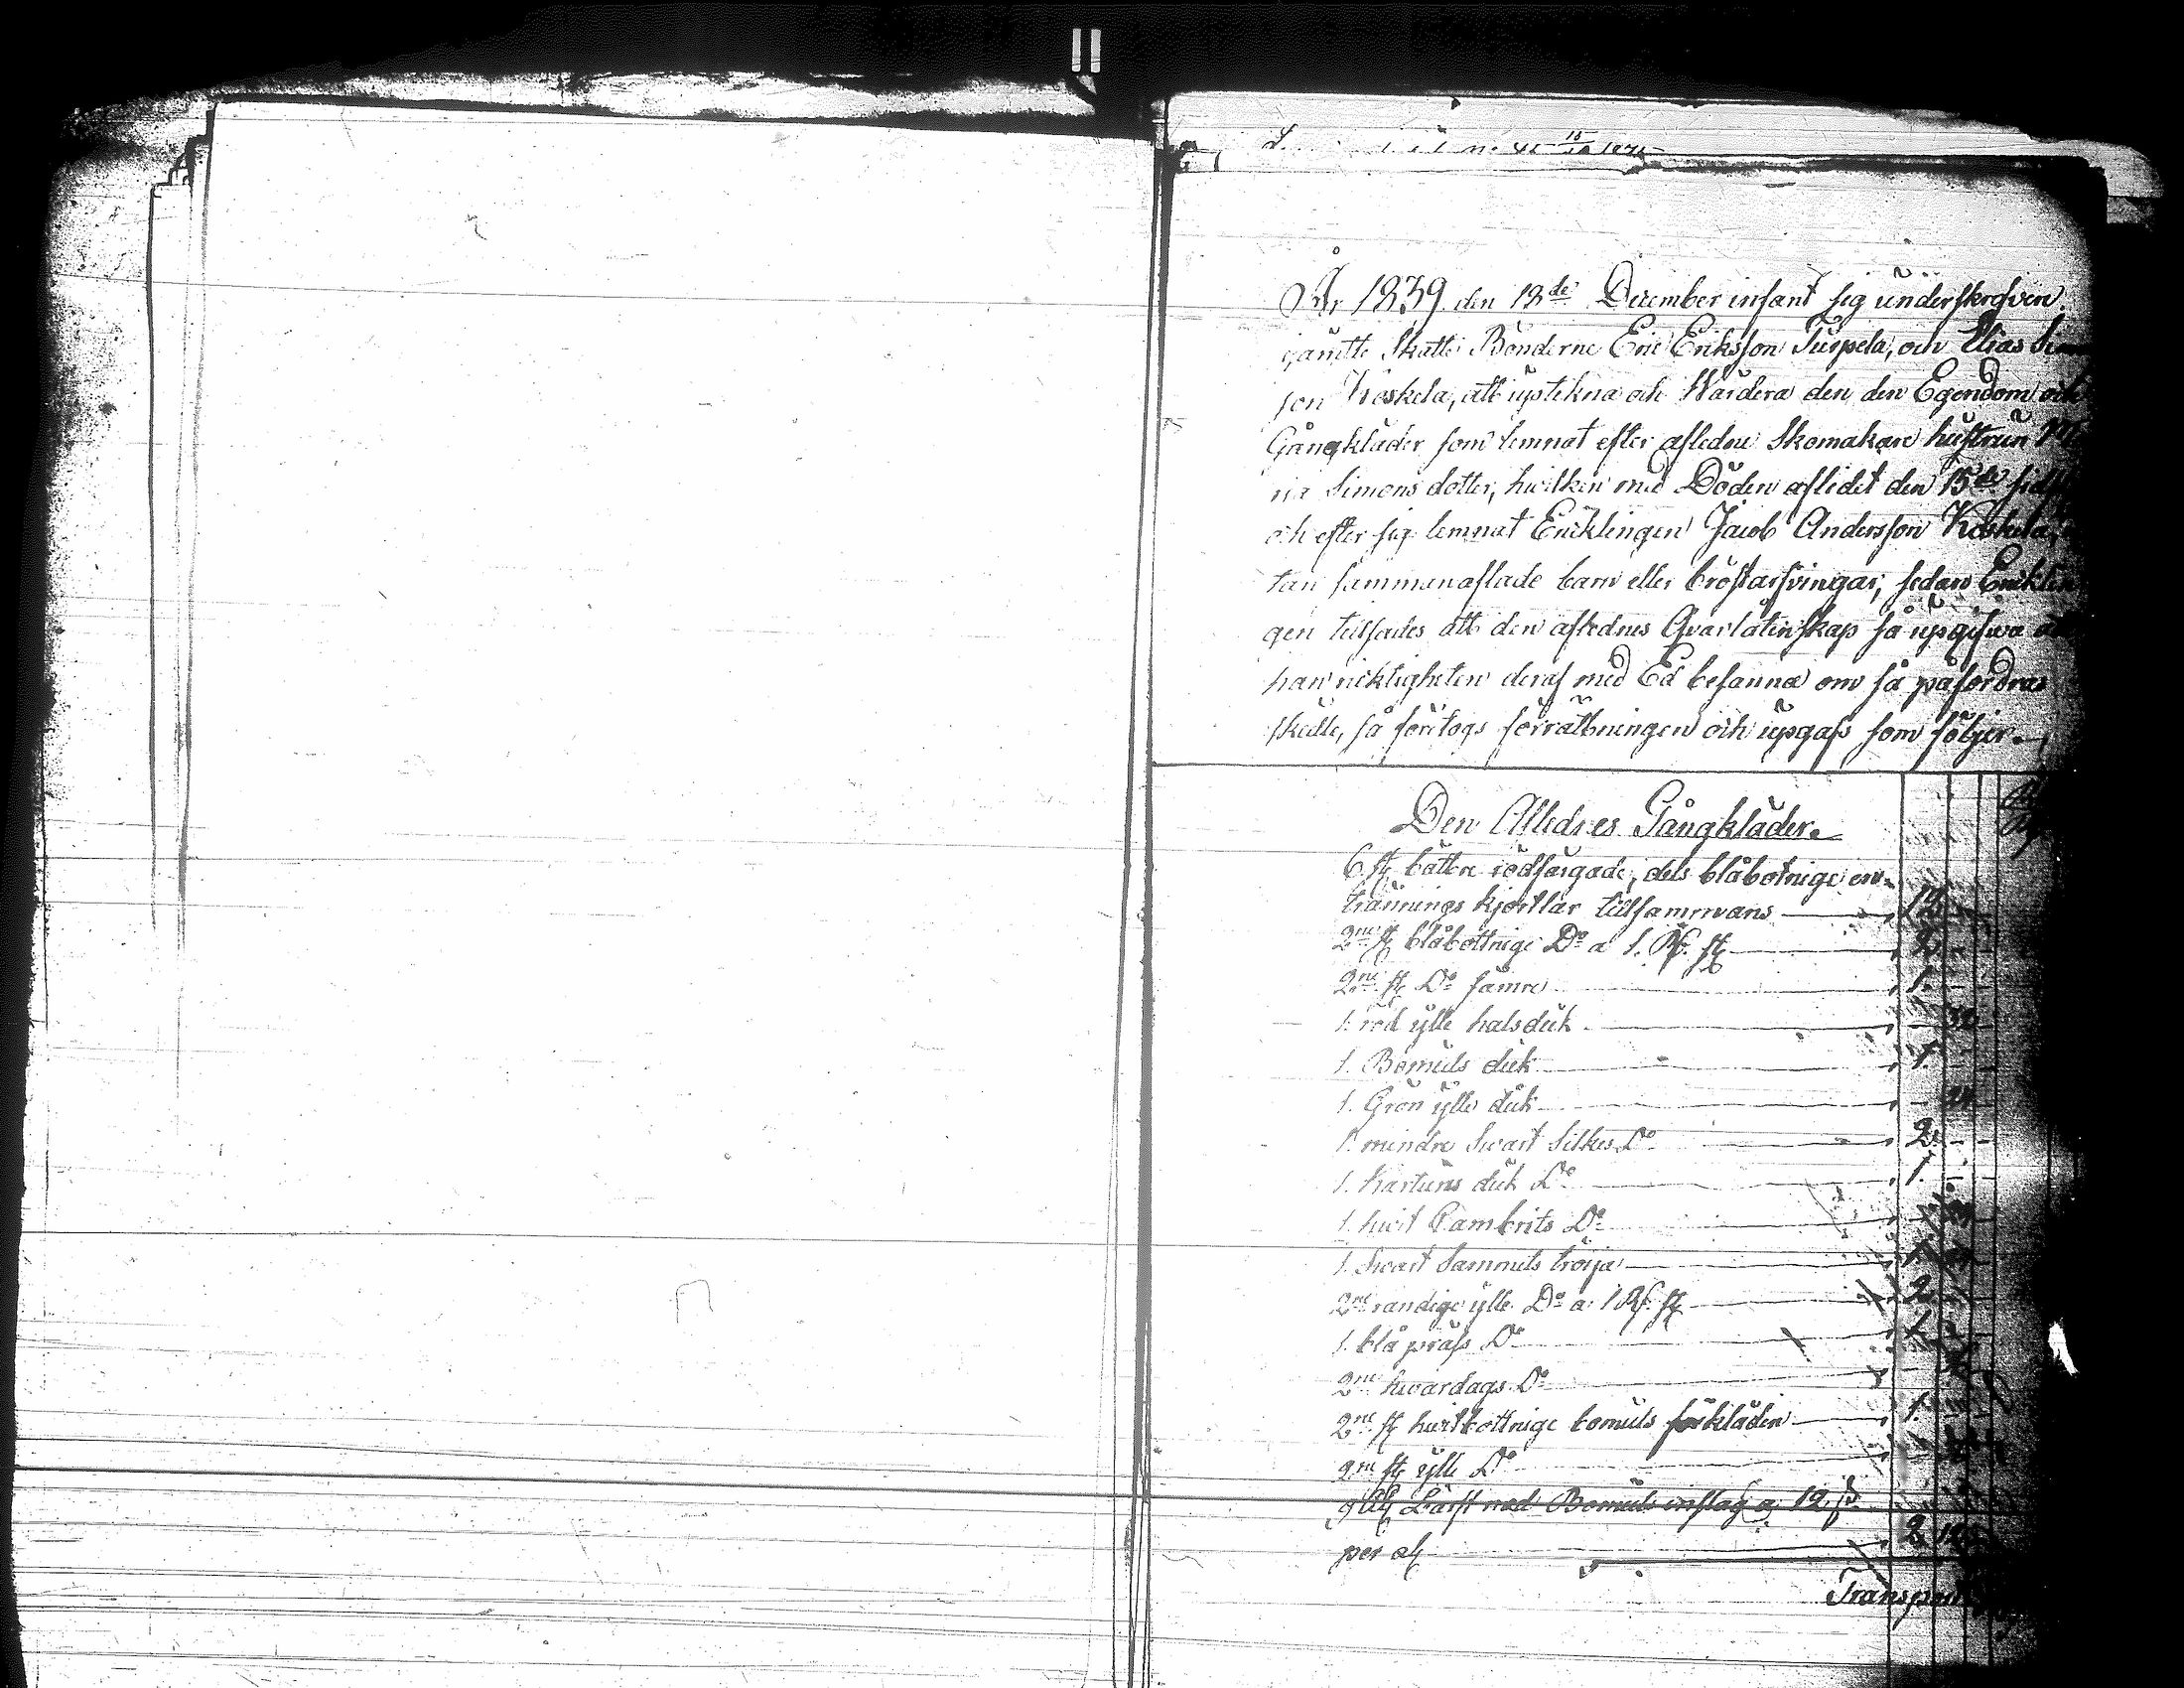 År 1839 den 18de December infant sig underskrefven
jämtte Skatte Bönderne Eric Eriksson Turpela, och Elias Sim
son Koskela, att uptekna och Wärdera den den Egendom och
Gångkläder som lemnat efter afledne Skomakare hustrun Ma
ria Simons dotter, hvilken med Döden aflidet den 15de
och efter sig lemnat Encklingen Jacob Andersson Koskela, u
tan sammanaflade barn eller bröstarfvingar, sedan Encklin
gen tillsades att den aflednes Qvarlåtenskap så upgifwa att
han ricktigheten deraf med Ed besanna om så påfordras
skulle, så företogs förrättningen och upgafs som följer.
Den Afledнes Gångkläder.
6 st bättre rödfärgade, dels blåbotnige en-
tränings kjortlar tillsammans 12
2ne st blåbottnige Do a 1. Rf. st 2
2ne st Do sämre 1.
1. röd ylle halsduk
1. Bomuls duk 1.
1. Grön ylle duk 24
1. mindre Swart Silkes Do 2.
1. Kartuns duk Do 1.
1. hwit Cambrits Do
1. Swart Sammits tröija 1
2ne randige ylle Do a 1 Rf. st 2
1. blå präss Do 1
2ne hwardags Do
2ne st hwitbottnige bomuls förkläden 1.
2ne st ylle Do
9 Alf Lärft med Bomuls inslag a 12 s
per alf 2
Transport